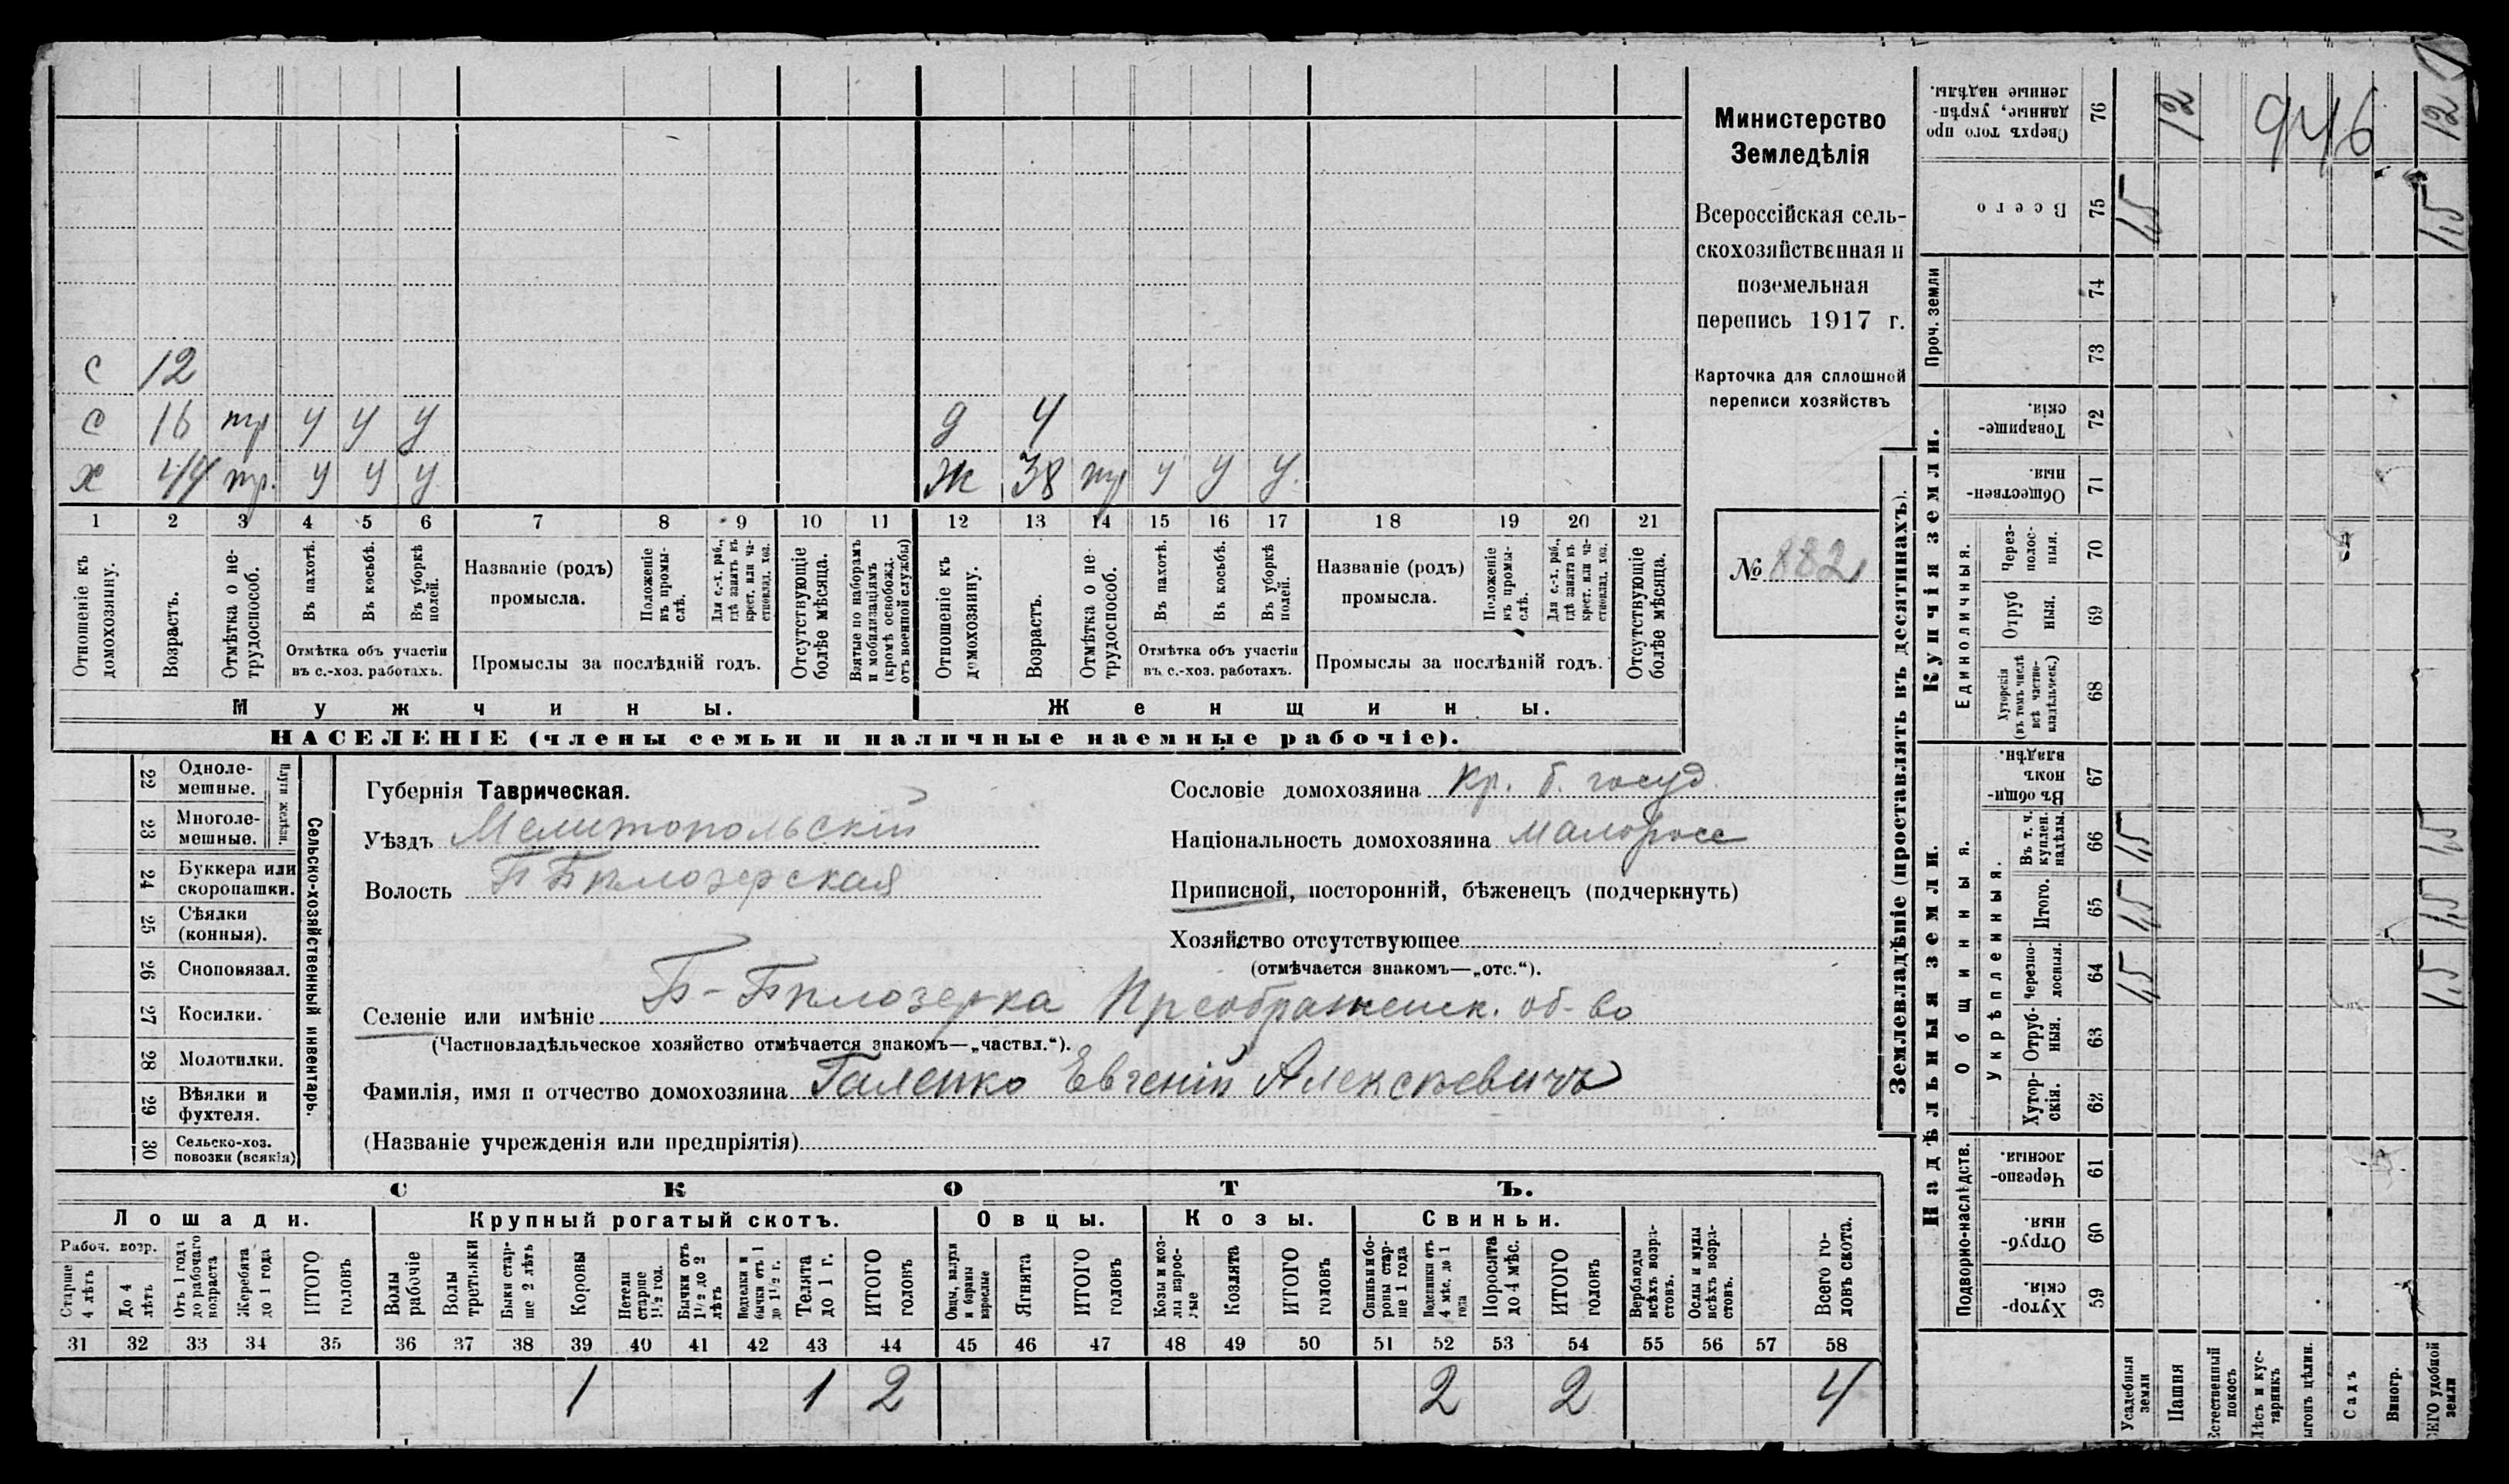 с 12
с 16 тр у у у д 4
х 44 тр. у у у Ж 38 тр у у у.
1 2 3 4 5 6 7 8 9 10 11 12 13 14 15 16 17 18 19 20 21
Отношеніе къ домохозяину.
Возрастъ.
Отмѣтка о не-трудоспособ.
Въ пахотѣ.
Въ косьбѣ.
Въ уборкѣ полей.
Отмѣтка объ участіи
въ с.-хоз. работахъ.
Названіе (родъ)
промысла.
Положеніе въ промы-слѣ.
Для с.-х. раб., гдѣ занятъ въ крест. или ча-стновлад. хоз.
Промыслы за послѣдній годъ.
Отсутствующіе болѣе мѣсяца.
Взятые по наборамъ и мобилизаціямъ (кромѣ освобожд. отъ военной службы)
Отношеніе къ домохозяину.
Возрастъ.
Отмѣтка о не-трудоспособ.
Въ пахотѣ.
Въ косьбѣ.
Въ уборкѣ полей.
Отмѣтка объ участіи
въ с.-хоз. работахъ.
Названіе (родъ)
промысла.
Положеніе въ промы-слѣ.
Для с.-х. раб., гдѣ занята въ крест. или ча-стновлад. хоз.
Промыслы за послѣдній годъ.
Отсутствующіе болѣе мѣсяца.
Мужчины. Женщины.
НАСЕЛЕНІЕ (члены семьи и наличные наемные рабочіе).
Министерство
Земледѣлія
Всероссійская сель-
скохозяйственная и
поземельная
перепись 1917 г.
Карточка для сплошной
переписи хозяйствъ
№ 882
Сельско-хозяйственный инвентарь.
Плуги желѣзн.
22 Одноле-
мешные.
23 Многоле-
мешные.
24 Буккера или
скоропашки.
25 Сѣялки
(конныя).
26 Сноповязал.
27 Косилки.
28 Молотилки.
29 Вѣялки и
фухтеля.
30 Сельско-хоз.
повозки (всякія)
Губернія Таврическая.
Уѣздъ Мелитопольскій
Волость Б Бѣлозерская
Сословіе домохозяина кр. б. госуд.
Національность домохозяина малоросс
Приписной, посторонній, бѣженецъ (подчеркнуть)
Хозяйство отсутствующее
(отмѣчается знакомъ—„отс.“).
Селеніе или имѣніе Б-Бѣлозерка Преображенск. об-во
(Частновладѣльческое хозяйство отмѣчается знакомъ—„частвл.“).
Фамилія, имя и отчество домохозяина Галенко Евгеній Алексѣевичъ
(Названіе учрежденія или предпріятія)
СКОТЪ.
Лошади. Крупный рогатый скотъ. Овцы. Козы. Свиньи.
Рабоч. возр.
Старше 4 лѣтъ
До 4 лѣтъ
Отъ 1 года до рабочаго возраста
Жеребята до 1 года
ИТОГО головъ
Волы рабочіе
Волы третьяки
Быки стар-ше 2 лѣтъ
Коровы
Нетели старше 1½ год.
Бычки отъ 1½ до 2 лѣтъ
Подтелки и бычки отъ 1 до 1½ г.
Телята до 1 г.
ИТОГО головъ
Овцы, валухи и бараны взрослые
Ягнята
ИТОГО головъ
Козы и коз-лы взрос-лые
Козлята
ИТОГО головъ
Свиньи и бо-ровы стар-ше 1 года
Подсвинки отъ 4 мѣс. до 1 года
Поросята до 4 мѣс.
ИТОГО головъ
Верблюды всѣхъ возра-стовъ.
Ослы и мулы всѣхъ возра-стовъ.
Всего го-ловъ скота.
31 32 33 34 35 36 37 38 39 40 41 42 43 44 45 46 47 48 49 50 51 52 53 54 55 56 57 58
1 1 2 2 2 4
Землевладѣніе (проставлять въ десятинахъ).
Надѣльныя земли.
Подворно-наслѣдств.
Хутор-скія. 59
Отруб-ныя. 60
Черезпо-лосныя. 61
Общинныя.
Укрѣпленныя.
Хутор-скія. 62
Отруб-ныя. 63
Черезпо-лосныя. 64 1,5 1,5
Итого. 65 1,5 1,5
Въ т. ч. куплен. надѣлы. 66 1,5 1,5
Въ общин-номъ владѣн. 67
Купчія земли.
Единоличныя.
Хуторскія (въ томъ числѣ всѣ частно-владѣльческ.) 68
Отруб-ныя. 69
Через-полос-ныя. 70
Обществен-ныя. 71
Товарище-скія. 72
Проч. земли
73
74
Всего 75 1,5 1,5
Сверхъ того про-данные, укрѣп-ленные надѣлы. 76 12 946 12
Усадебныя земли
Пашня
Естественный покосъ
Лѣсъ и кус-тарникъ
Выгонъ цѣлин.
Садъ
Виногр.
ВСЕГО удобной земли